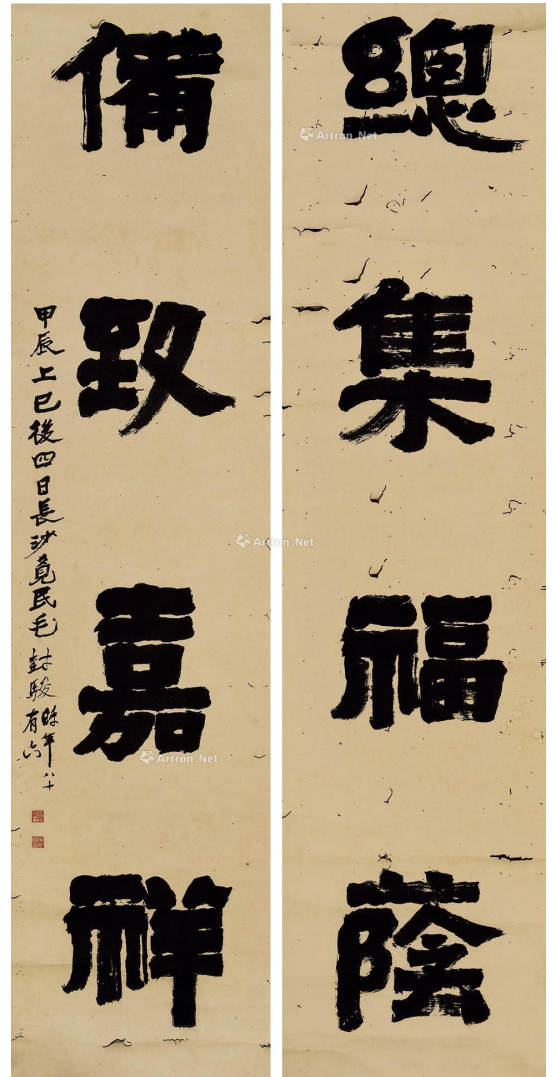 總集福蔭
備致嘉祥
甲辰上巳後四日長沙竟民毛
駿時年八十有六
Artron.Net
Artron.Net
Artron.Net